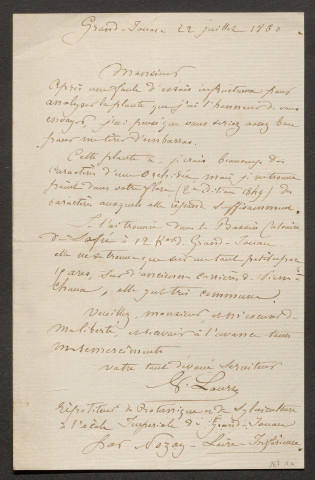 Grand-Jouan 22 juillet 1860
Monsieur
Après une foule d'essais infructueux pour
analyser la plante que j'ai l'honneur de vous
envoyer, j'ai pensé que vous seriez assez bon
pour me tirer d'embarras.
Cette plante a, je crois beaucoup des
caractères d'une Orchidée mais je ne trouve
point dans votre flore (2e édition 1849) des
caractères auxquels elle réponde suffisamment.
Je l'ai trouvée dans le Bassin Calcaire
de Saffré à 12 K. de Grand-Jouan
elle ne se trouve que sur un tout petit espace
15 ares, sur d'anciennes carrières de Pierre à
Chaux, elle y est très commune
Veuillez, monsieur, m'excuser de
ma liberté, et recevoir à l'avance tous
mes remerciements
votre tout dévoué serviteur
Répétiteur de Botanique et de Sylviculture
à l'école Impériale de Grand-Jouan
par Nozay - Loire Inférieure